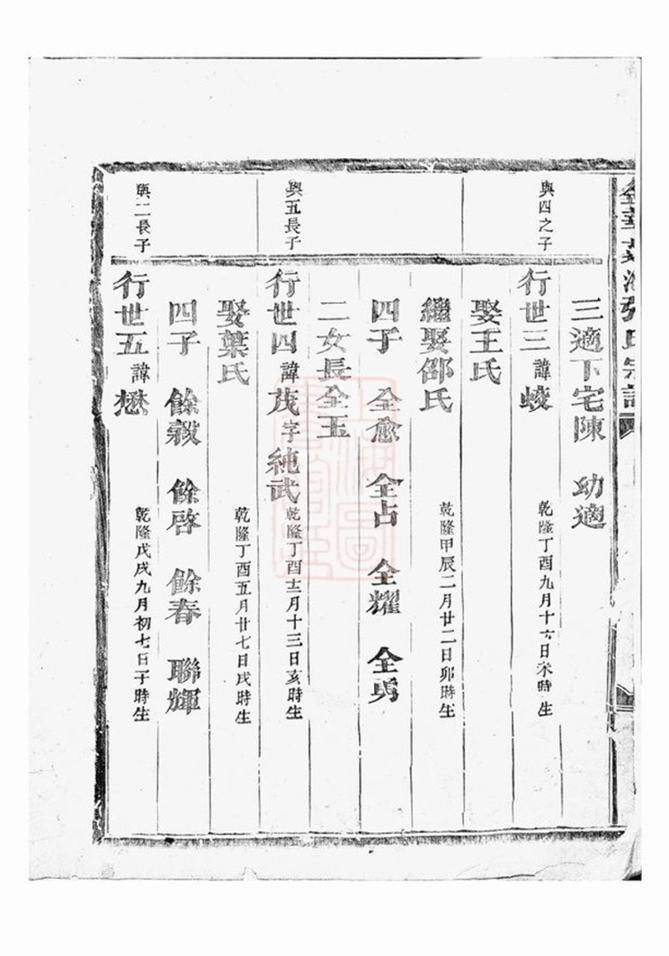 三適下宅陳　幼適
與四之子
行世三　諱　乾隆丁酉九月十六日未時生
娶王氏
繼娶邵氏　乾隆甲辰二月廿二日卯時生
四子　全愈　全占　全耀　全勇
二女長全玉
與五長子
行世四　諱茂　字純武　乾隆丁酉十二月十三日亥時生
娶葉氏　乾隆丁酉五月廿七日戌時生
四子　餘穀　餘啓　餘春　聯輝
與二長子
行世五　諱懋　乾隆戊戌九月初七日子時生